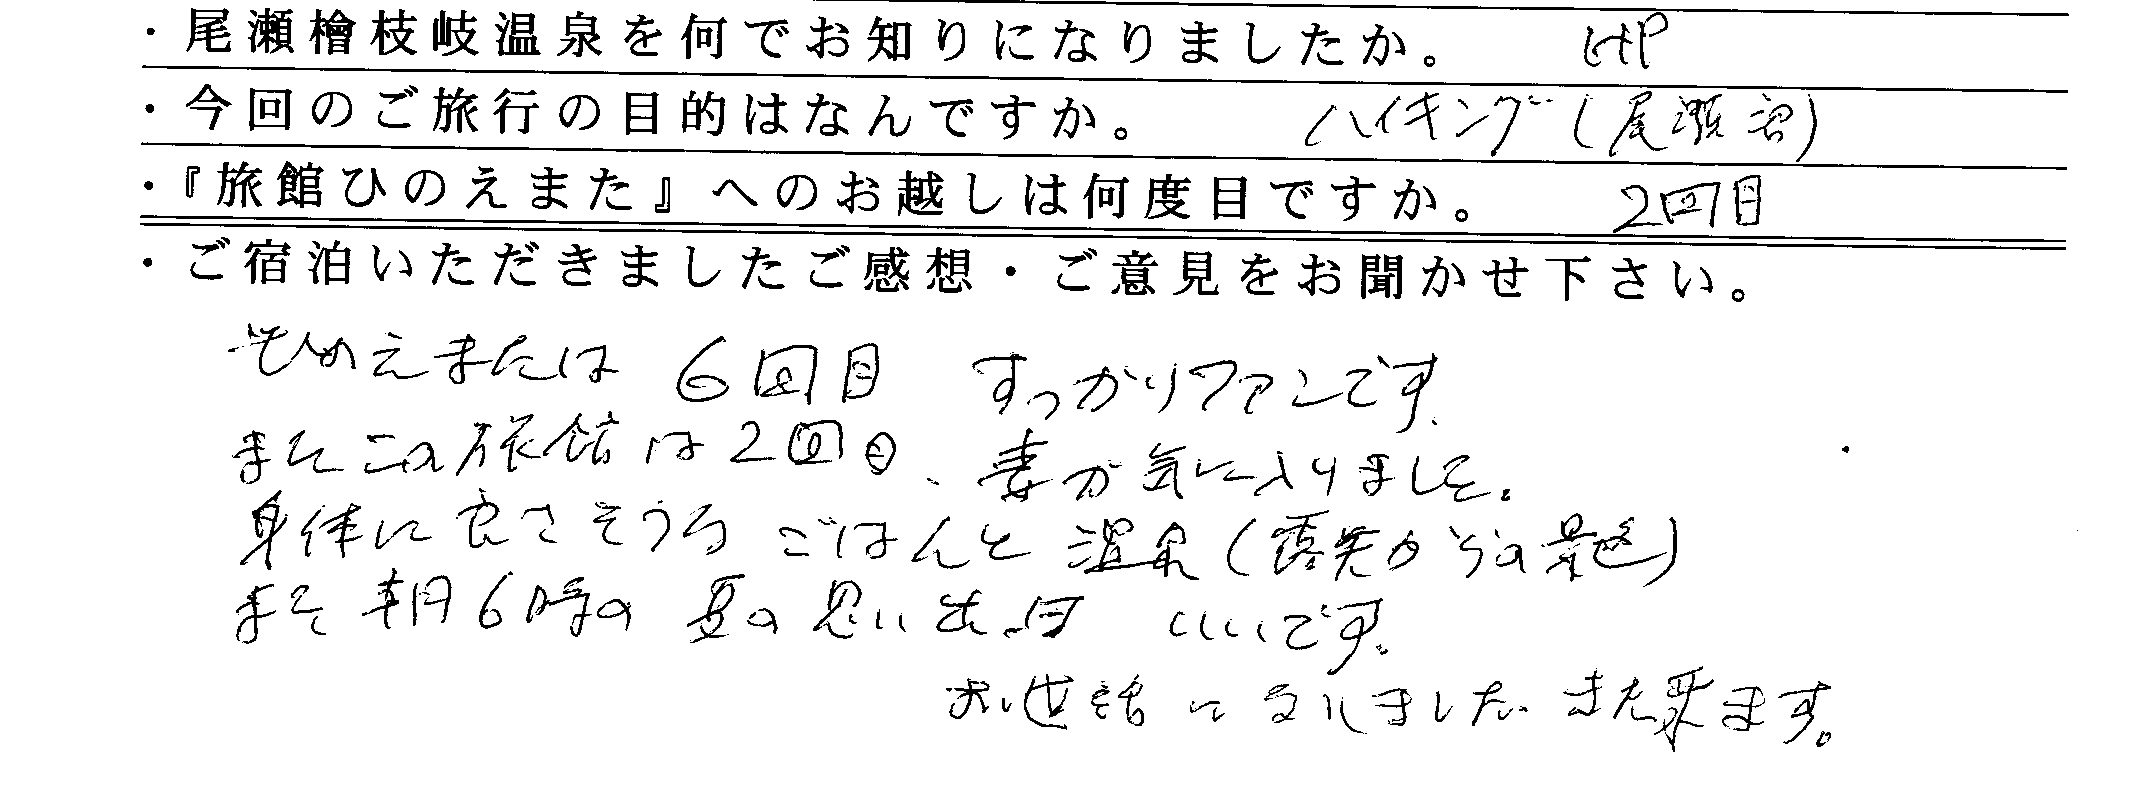 ・尾瀬檜枝岐温泉を何でお知りになりましたか。 HP
・今回のご旅行の目的はなんですか。 ハイキング(尾瀬沼)
・『旅館ひのえまた』へのお越しは何度目ですか。 2回目
・ご宿泊いただきましたご感想・ご意見をお聞かせ下さい。
ひのえまたは 6回目 すっかりファンです。
またこの旅館は2回目、妻が気に入りました。
身体に良さそうな ごはんと 温泉(露天からの景色)
また 朝6時の 夏の思い出は いいです。
お世話になりました。また来ます。